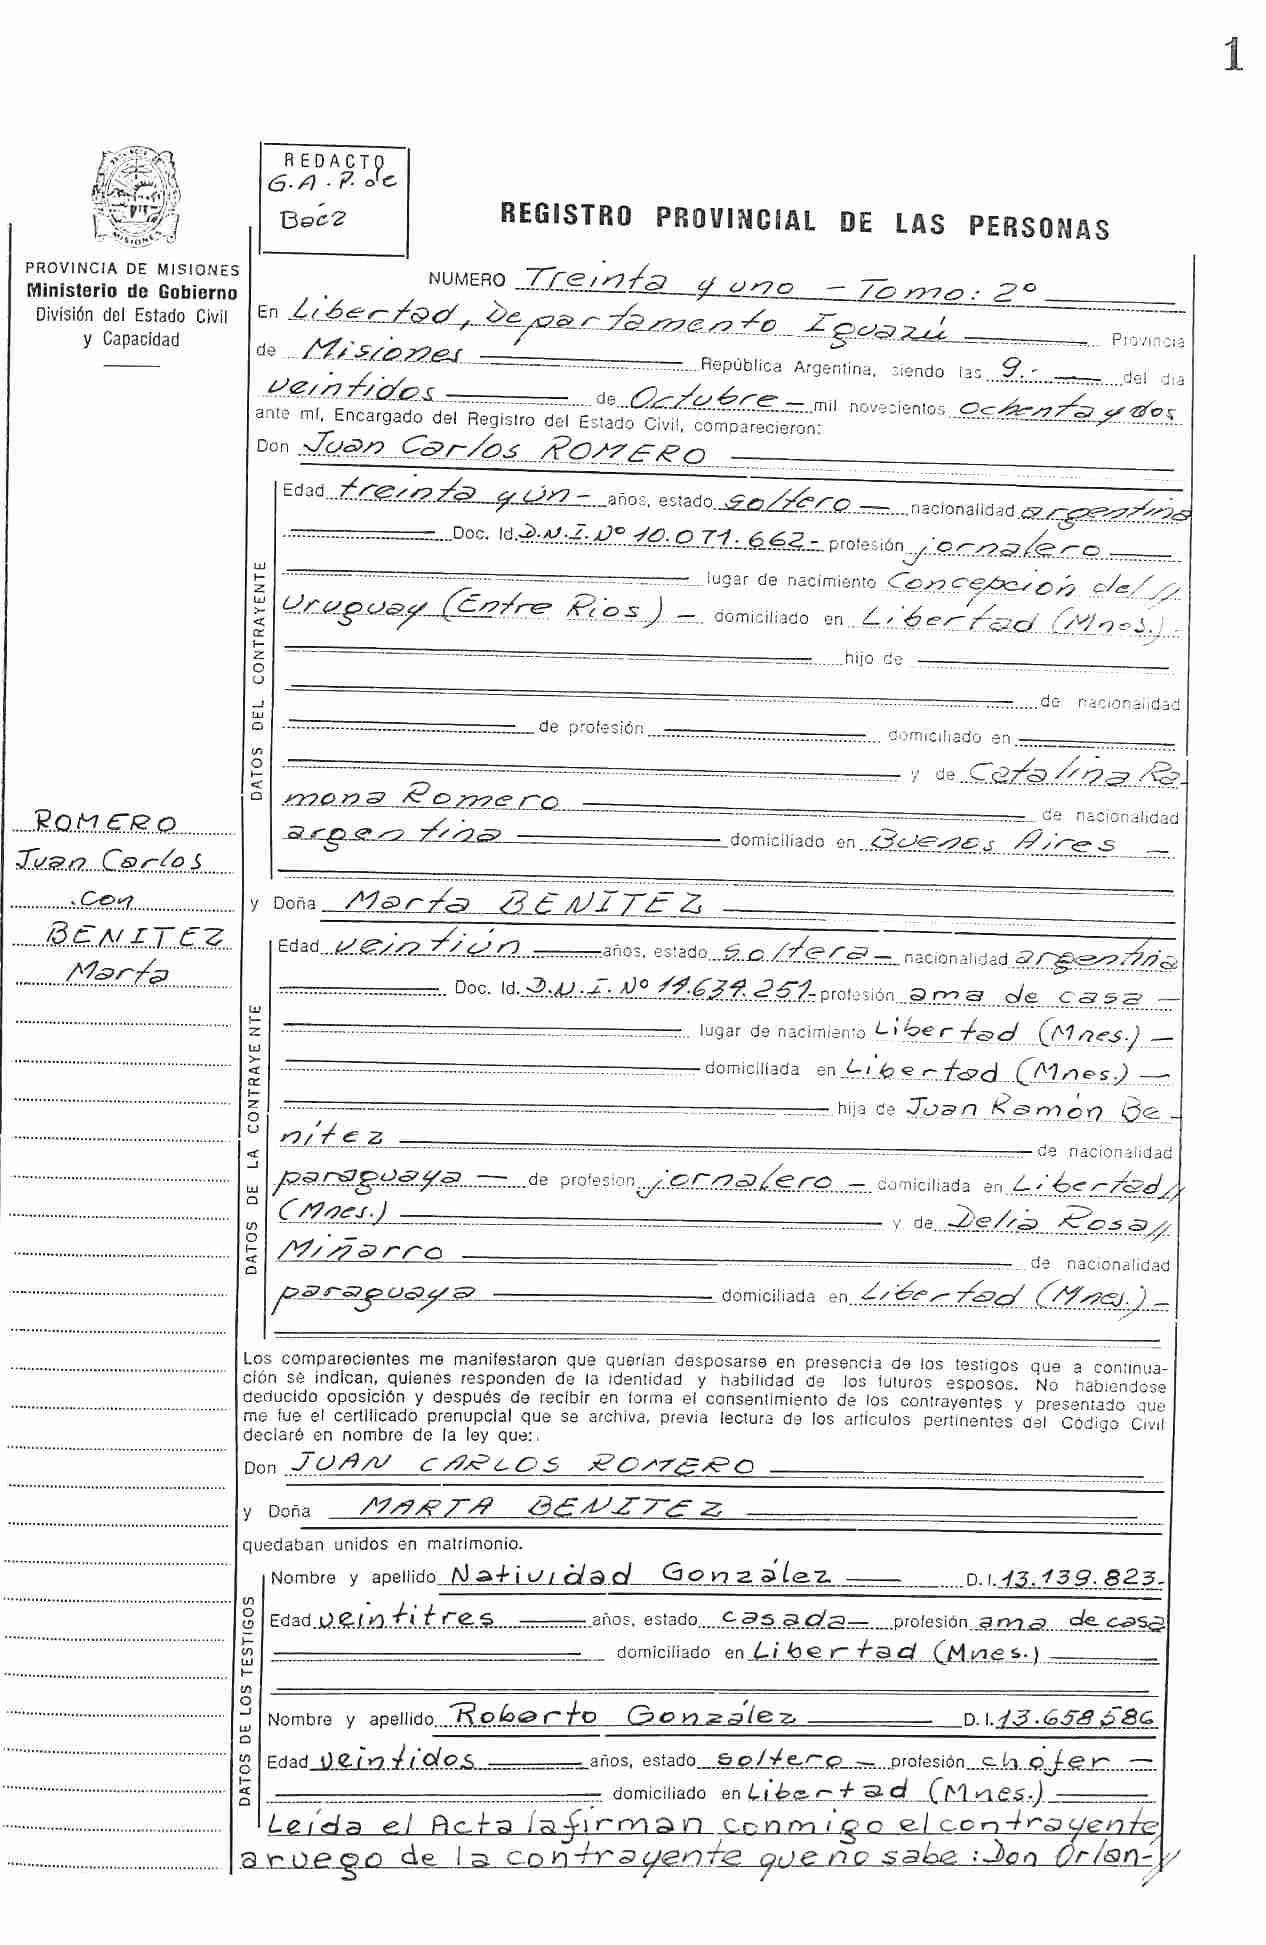 1
REDACTO
G.A.P. de
Baéz
REGISTRO PROVINCIAL DE LAS PERSONAS
PROVINCIA DE MISIONES
Ministerio de Gobierno
División del Estado Civil
y Capacidad
NUMERO Treinta y uno - Tomo: 2º
En Libertad, Departamento Iguazú Provincia
de Misiones República Argentina, siendo las 9.- del día
veintidos de Octubre - mil novecientos ochenta y dos
ante mí, Encargado del Registro del Estado Civil, comparecieron:
Don Juan Carlos ROMERO
DATOS DEL CONTRAYENTE
Edad treinta y ún - años, estado soltero - nacionalidad argentina
Doc. Id. D.N.I. Nº 10.071.662- profesión jornalero
lugar de nacimiento Concepción del//
Uruguay (Entre Ríos) - domiciliado en Libertad (Mnes.) -
hijo de
de nacionalidad
de profesión domiciliado en
y de Catalina Ra-
mona Romero de nacionalidad
argentina domiciliado en Buenos Aires -
ROMERO
Juan Carlos
con
BENITEZ
Marta
y Doña Marta BENITEZ
DATOS DE LA CONTRAYENTE
Edad veintiún años, estado soltera - nacionalidad argentina
Doc. Id. D.N.I. Nº 14.634.251- profesión ama de casa -
lugar de nacimiento Libertad (Mnes.) -
domiciliada en Libertad (Mnes.) -
hija de Juan Ramón Be-
nítez de nacionalidad
paraguaya - de profesion jornalero - domiciliada en Libertad//
(Mnes.) y de Delia Rosa//
Miñarro de nacionalidad
paraguaya domiciliada en Libertad (Mnes.) -
Los comparecientes me manifestaron que querían desposarse en presencia de los testigos que a continua-
ción se indican, quienes responden de la identidad y habilidad de los futuros esposos. No habiéndose
deducido oposición y después de recibir en forma el consentimiento de los contrayentes y presentado que
me fue el certificado prenupcial que se archiva, previa lectura de los artículos pertinentes del Código Civil
declaré en nombre de la ley que:
Don JUAN CARLOS ROMERO
y Doña MARTA BENITEZ
quedaban unidos en matrimonio.
DATOS DE LOS TESTIGOS
Nombre y apellido Natividad González D.I. 13.139.823-
Edad veintitres años, estado casada - profesión ama de casa
domiciliado en Libertad (Mnes.)
Nombre y apellido Roberto González D.I. 13.658586
Edad veintidos años, estado soltero - profesión chofer -
domiciliado en Libertad (Mnes.)
Leída el Acta la firman conmigo el contrayente
a ruego de la contrayente que no sabe: Don Orlan-//